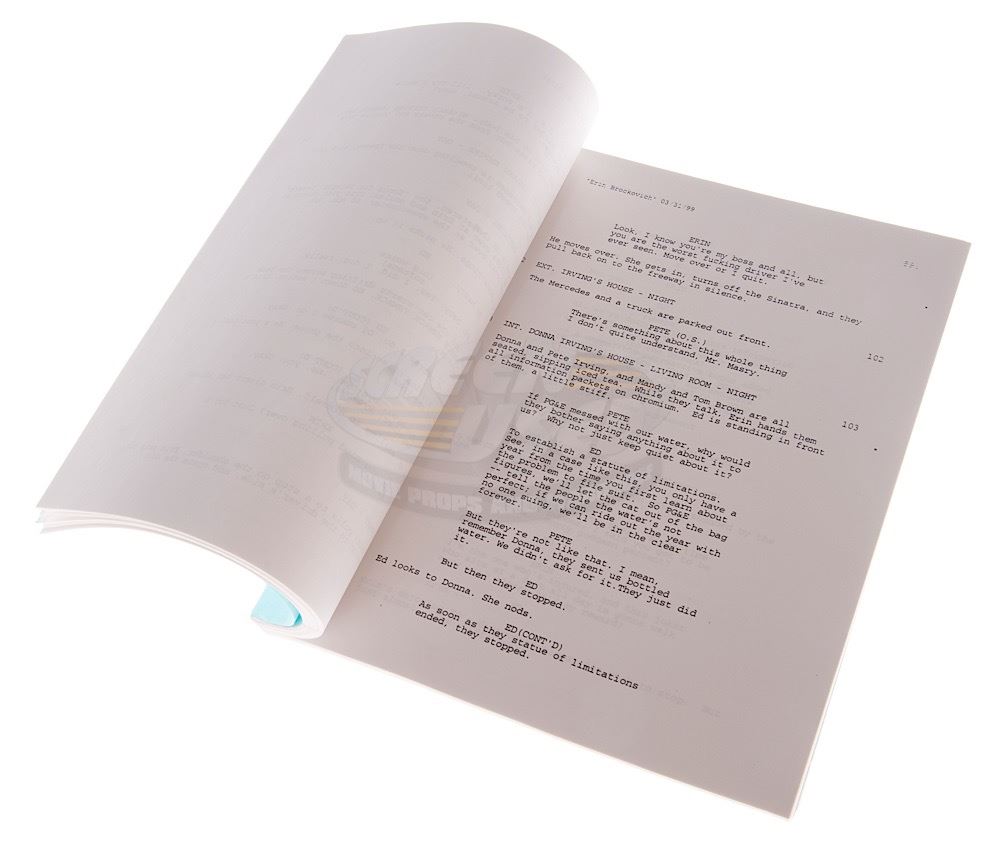 'Erin Brockovich' 03/31/99
ERIN
Look, I know you're my boss and all, but
you are the worst fucking driver I've
ever seen. Move over or I quit.
He moves over. She gets in, turns off the Sinatra, and they
pull back on to the freeway in silence.
EXT. IRVING'S HOUSE - NIGHT
The Mercedes and a truck are parked out front.
PETE (O.S.)
There's something about this whole thing
I don't quite understand, Mr. Masry.
102
INT. DONNA IRVING'S HOUSE - LIVING ROOM - NIGHT
Donna and Pete Irving, and Mandy and Tom Brown are all
seated, sipping iced tea. While they talk, Erin hands them
all information packets on chromium. Ed is standing in front
of them, a little stiff.
103
PETE
If PG&E messed with our water, why would
they bother saying anything about it to
us? Why not just keep quiet about it?
ED
To establish a statute of limitations.
See, in a case like this, you only have a
year from the time you first learn about
the problem to file suit. So PG&E
figures, we'll let the cat out of the bag
-- tell the people the water's not
perfect; if we can ride out the year with
no one suing, we'll be in the clear
forever.
PETE
But they're not like that. I mean,
remember Donna, they sent us bottled
water. We didn't ask for it.They just did
it.
ED
But then they stopped.
Ed looks to Donna. She nods.
ED(CONT'D)
As soon as they statue of limitations
ended, they stopped.
MOVIE PROPS